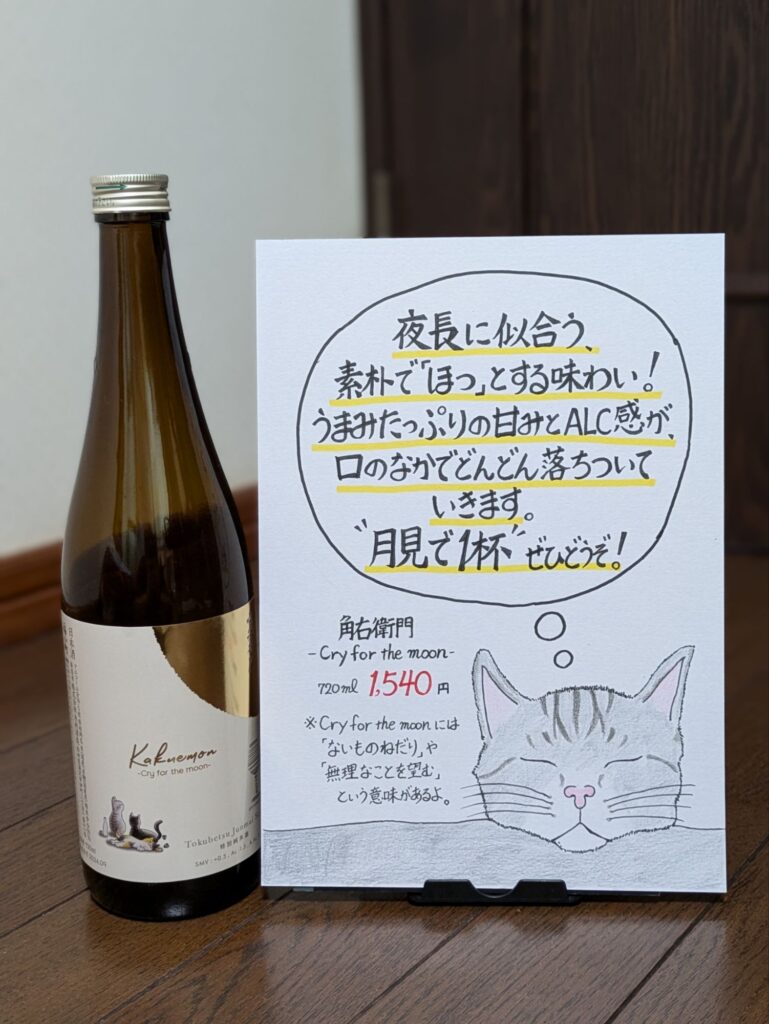 夜長に似合う、
素朴で「ほっ」とする味わい!
うまみたっぷりの甘みとALC感が、
口のなかでどんどん落ちついて
いきます。
〝月見で1杯〟ぜひどうぞ!
角右衛門
-Cry for the moon-
720ml 1,540円
※Cry for the moonには
「ないものねだり」や
「無理なことを望む」
という意味があるよ。
日本酒
Kakuemon
-Cry for the moon-
Tokubetsu Junmai
特別純米酒
SMV:+0.5
2024.09